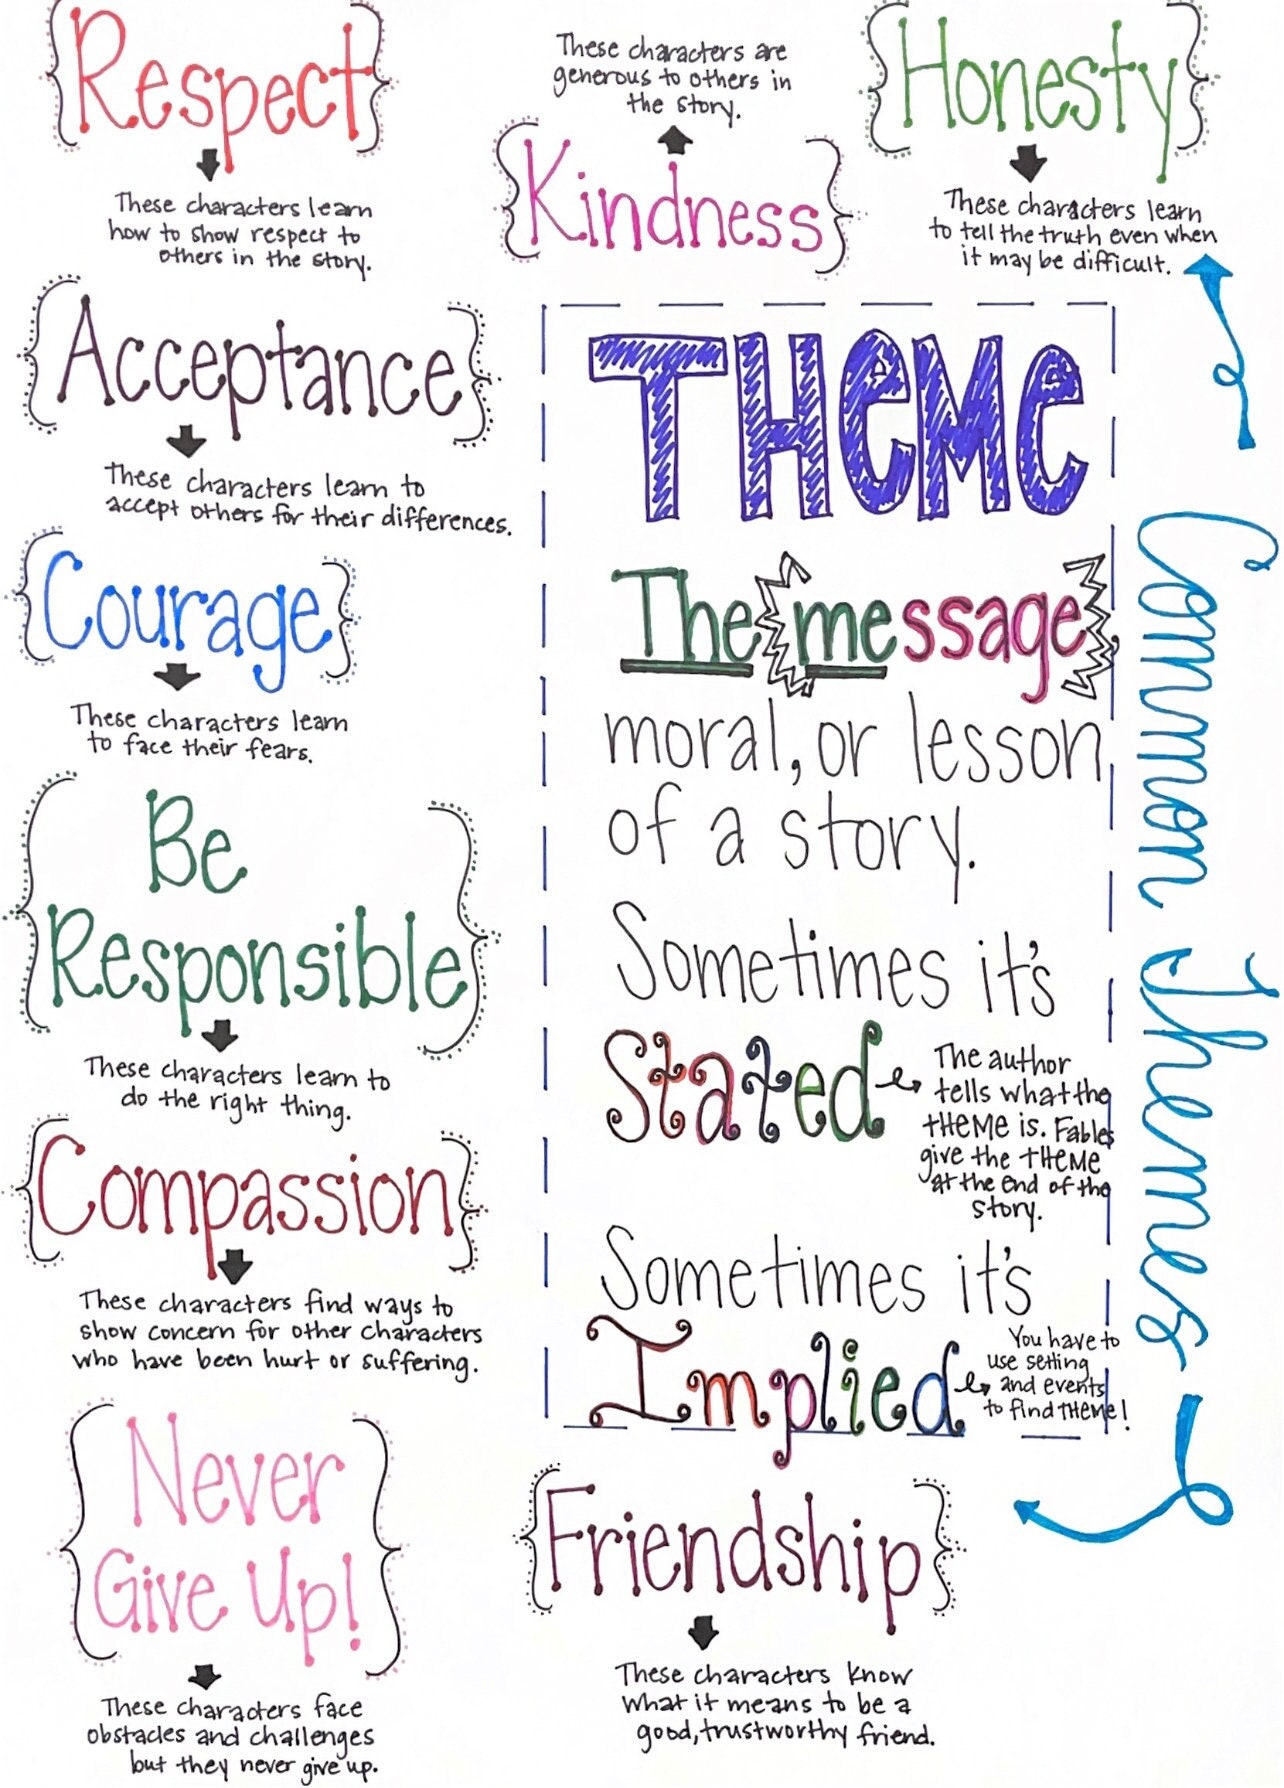 Respect
These characters learn
how to show respect to
others in the story.
These characters are
generous to others in
the story.
Kindness
Honesty
These characters learn
to tell the truth even when
it may be difficult.
Acceptance
These characters learn to
accept others for their differences.
Courage
These characters learn
to face their fears.
Be
Responsible
These characters learn to
do the right thing.
Compassion
These characters find ways to
show concern for other characters
who have been hurt or suffering.
Never
Give Up!
These characters face
obstacles and challenges
but they never give up.
THeMe
The message
moral, or lesson
of a story.
Sometimes it's
Stated
The author
tells what the
THeMe is. Fables
give the THeMe
at the end of the
story.
Sometimes it's
Implied
You have to
use setting
and events
to find THeMe!
Common Themes
Friendship
These characters know
what it means to be a
good, trustworthy friend.